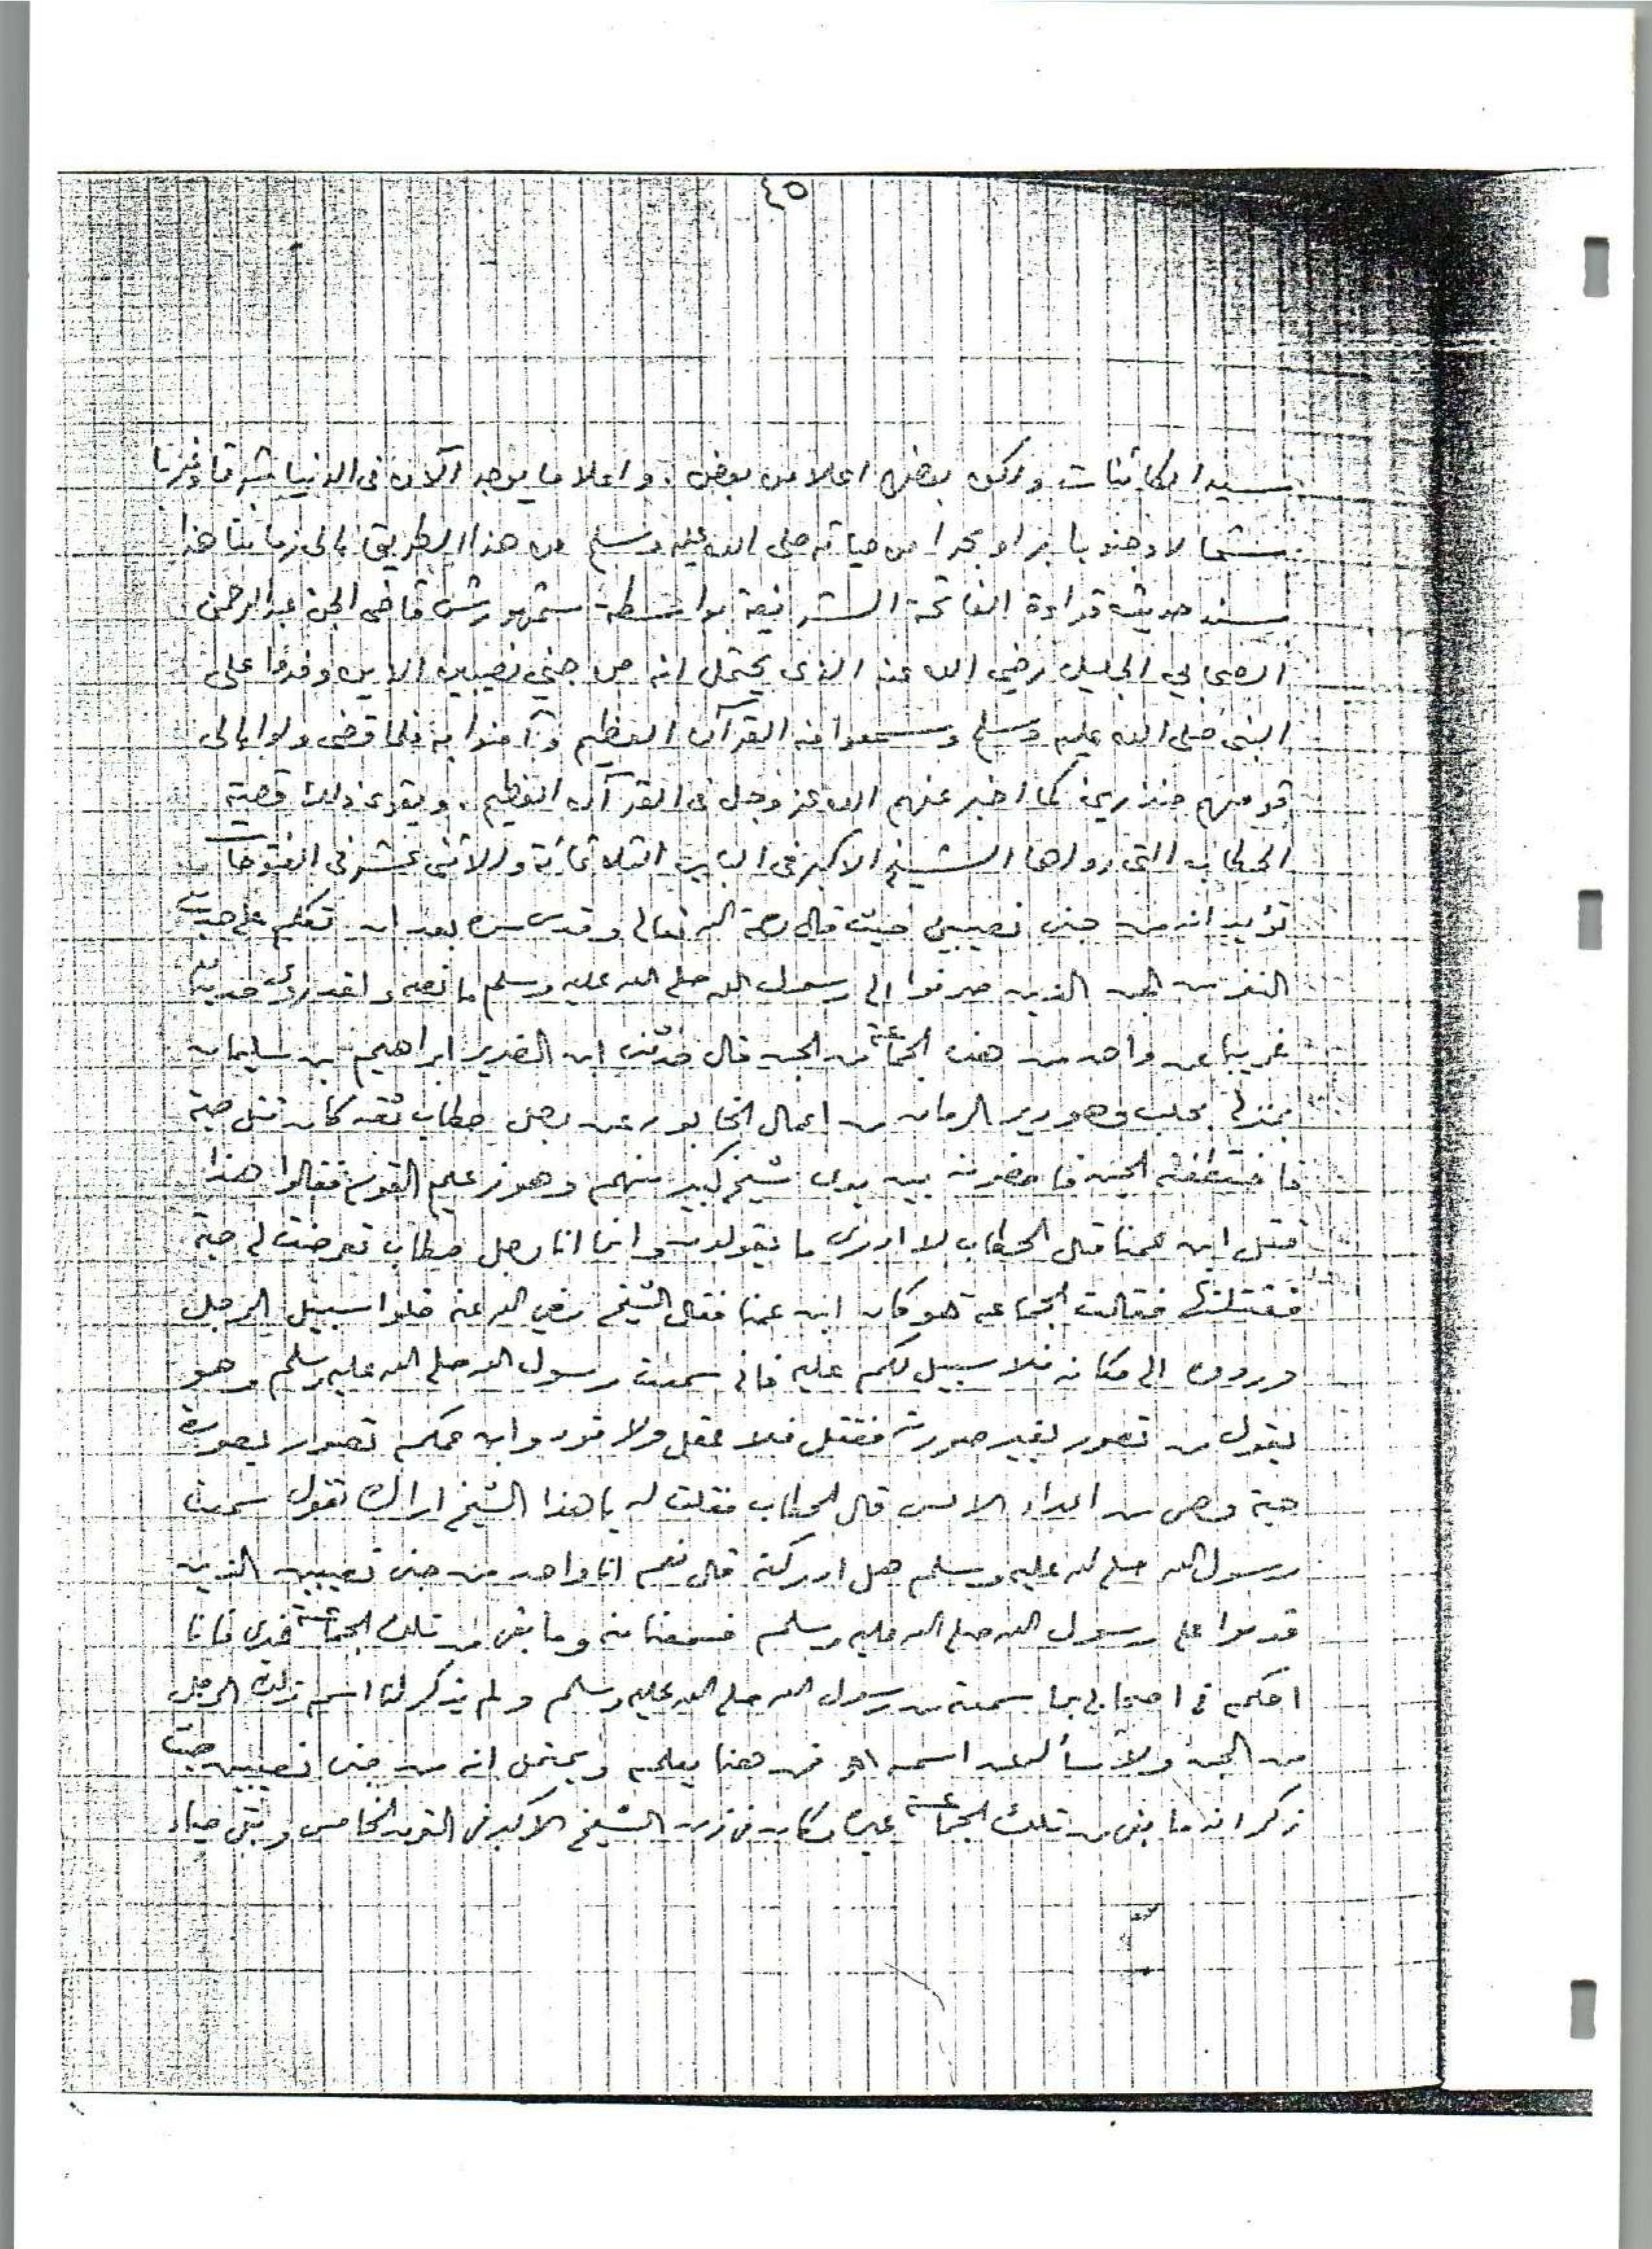 ٤٥
سيد الكائنات ولكن بعضها اعلا من بعض. واعلا ما يوجد الآن فى الدنيا شرقا وغربا
شمالا وجنوبا برا وبحرا من حياته صلى الله عليه وسلم من هذا الطريق الى زماننا هذا
سند حديث قراءة الفاتحة الشريفة بواسطة شمهورش قاضى الجن عبد الرحمن
الصحابي الجليل رضي الله عنه الذى يحتمل انه من جني نصيبين الذين وفدوا على
النبى صلى الله عليه وسلم وسمعوا منه القرآن العظيم وآمنوا به فلما قضى ولوا الى
قومهم منذرين كما اخبر عنهم الله عز وجل فى القرآن العظيم. ويقوى ذلك قصية
الحطاب التى رواها الشيخ الاكبر فى الباب الثلاثمائة والاثنى عشر فى الفتوحات
تؤيد انه من جنى نصيبين حيث قال رحمه الله تعالى وقدس سره بعد ان تكلم على حديث
النفر من الجن الذين صرفوا الى رسول الله صلى الله عليه وسلم ما نصه ولقد روى حديثا
غريبا عن واحد من هذه الجماعة من الجن قال حدثنى ابن الضرير ابراهيم بن سليمان
بمنزلى بحلب وهو دير الرمان من اعمال الخابور عن رجل حطاب ثقه كان قتل حية
فاختطفته الجن فاحضرته بين يدى شيخ كبير منهم وهو زعيم القوم فقالوا هذا
قتل ابن عمنا قال الحطاب لا ادرى ما تقولون وانما انا رجل حطاب تعرضت لى حية
فقتلتها فقالت الجماعه هو كان ابن عمنا فقال الشيخ رضي الله عنه خلوا سبيل الرجل
وردوه الى مكانه فلا سبيل لكم عليه فانى سمعت رسول الله صلى الله عليه وسلم وهو
يقول من تصور بغير صورته فقتل فلا عقل ولا قود وابن عمكم تصور بصورة
حية وهى من اعداء الانس قال الحطاب فقلت له يا هذا الشيخ اراك تقول سمعت
رسول الله صلى الله عليه وسلم هل ادركته قال نعم انا واحد من جنى نصيبين الذين
قدموا على رسول الله صلى الله عليه وسلم فسمعنا منه وما بقى من تلك الجماعة غيرى فانا
احكم فى اصحابى بما سمعته من رسول الله صلى الله عليه وسلم ولم يذكر لنا اسم ذلك الرجل
من الجن ولا سأله عن اسمه اه فمن هنا يعلم ويحتمل انه من جنى نصيبين حيث
ذكر انه ما بقى من تلك الجماعة غيره كان فى زمن الشيخ الاكبر فى القرن الخامس وبقى حياء